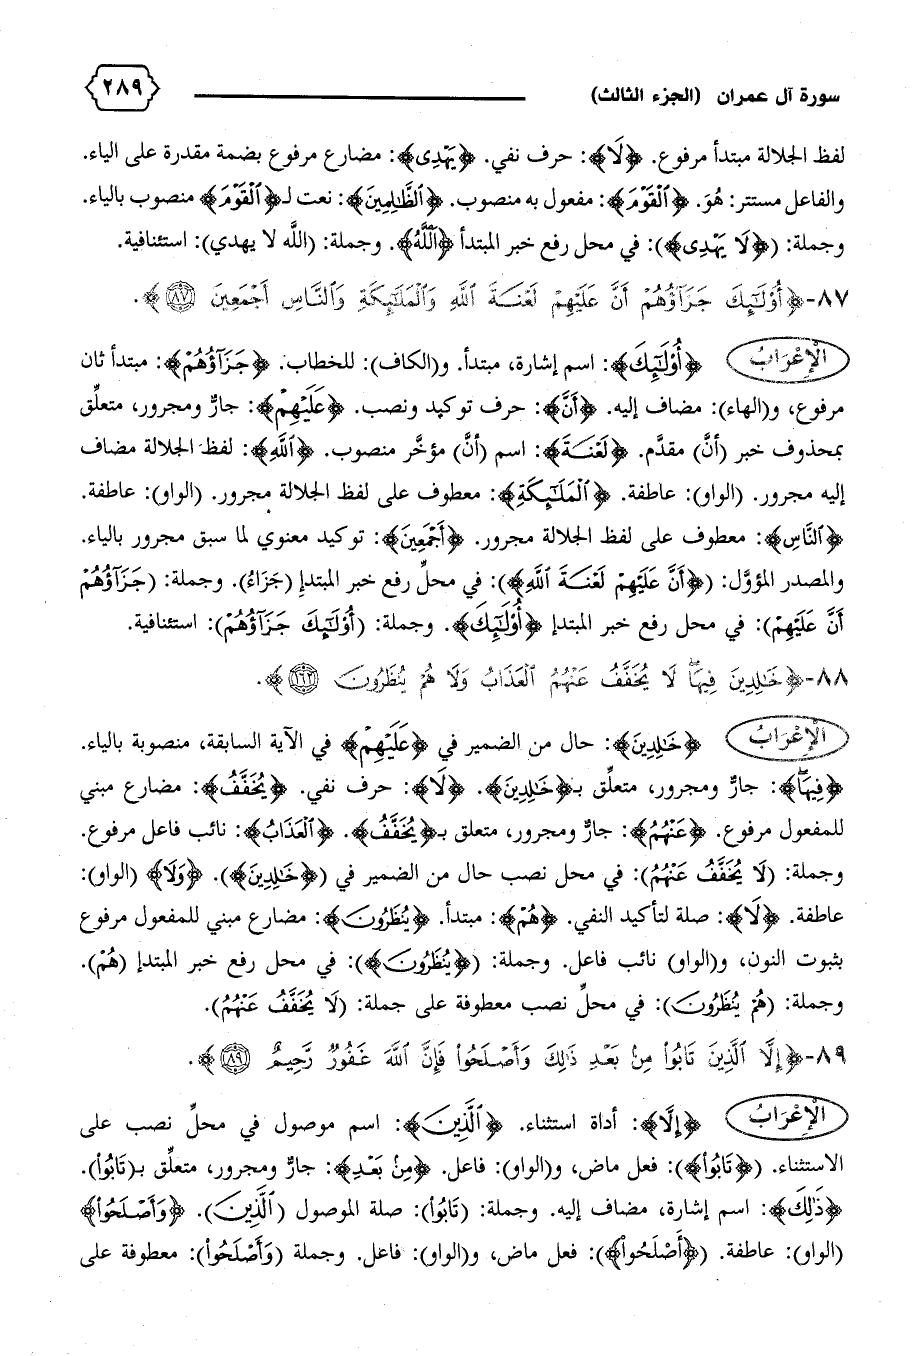 سورة آل عمران (الجزء الثالث) ٢٨٩
لفظ الجلالة مبتدأ مرفوع. ﴿لَا﴾: حرف نفي. ﴿يَهْدِى﴾: مضارع مرفوع بضمة مقدرة على الياء.
والفاعل مستتر: هُوَ. ﴿ٱلْقَوْمَ﴾: مفعول به منصوب. ﴿ٱلظَّٰلِمِينَ﴾: نعت لـ﴿ٱلْقَوْمَ﴾ منصوب بالياء.
وجملة: (﴿لَا يَهْدِى﴾): في محل رفع خبر المبتدأ ﴿ٱللَّهُ﴾. وجملة: (اللَّه لا يهدي): استئنافية.
٨٧-﴿أُوْلَٰٓئِكَ جَزَآؤُهُمْ أَنَّ عَلَيْهِمْ لَعْنَةَ ٱللَّهِ وَٱلْمَلَٰٓئِكَةِ وَٱلنَّاسِ أَجْمَعِينَ ٨٧﴾.
الْإِعْرَابُ ﴿أُوْلَٰٓئِكَ﴾: اسم إشارة، مبتدأ. و(الكاف): للخطاب. ﴿جَزَآؤُهُمْ﴾: مبتدأ ثان
مرفوع، و(الهاء): مضاف إليه. ﴿أَنَّ﴾: حرف توكيد ونصب. ﴿عَلَيْهِمْ﴾: جارٌّ ومجرور، متعلِّق
بمحذوف خبر (أنَّ) مقدَّم. ﴿لَعْنَةَ﴾: اسم (أنَّ) مؤخَّر منصوب. ﴿ٱللَّهِ﴾: لفظ الجلالة مضاف
إليه مجرور. (الواو): عاطفة. ﴿ٱلْمَلَٰٓئِكَةِ﴾: معطوف على لفظ الجلالة مجرور. (الواو): عاطفة.
﴿ٱلنَّاسِ﴾: معطوف على لفظ الجلالة مجرور. ﴿أَجْمَعِينَ﴾: توكيد معنوي لما سبق مجرور بالياء.
والمصدر المؤوَّل: (﴿أَنَّ عَلَيْهِمْ لَعْنَةَ ٱللَّهِ﴾): في محلِّ رفع خبر المبتدإ (جَزَاءُ). وجملة: (جَزَآؤُهُمْ
أَنَّ عَلَيْهِمْ): في محل رفع خبر المبتدإ ﴿أُوْلَٰٓئِكَ﴾. وجملة: (أُوْلَٰٓئِكَ جَزَآؤُهُمْ): استئنافية.
٨٨-﴿خَٰلِدِينَ فِيهَاۖ لَا يُخَفَّفُ عَنْهُمُ ٱلْعَذَابُ وَلَا هُمْ يُنظَرُونَ ١٦٢﴾.
الْإِعْرَابُ ﴿خَٰلِدِينَ﴾: حال من الضمير في ﴿عَلَيْهِمْ﴾ في الآية السابقة، منصوبة بالياء.
﴿فِيهَاۖ﴾: جارٌّ ومجرور، متعلِّق بـ﴿خَٰلِدِينَ﴾. ﴿لَا﴾: حرف نفي. ﴿يُخَفَّفُ﴾: مضارع مبني
للمفعول مرفوع. ﴿عَنْهُمُ﴾: جارٌّ ومجرور، متعلق بـ﴿يُخَفَّفُ﴾. ﴿ٱلْعَذَابُ﴾: نائب فاعل مرفوع.
وجملة: (لَا يُخَفَّفُ عَنْهُمُ): في محل نصب حال من الضمير في (﴿خَٰلِدِينَ﴾). ﴿وَلَا﴾ (الواو):
عاطفة. ﴿لَا﴾: صلة لتأكيد النفي. ﴿هُمْ﴾: مبتدأ. ﴿يُنظَرُونَ﴾: مضارع مبني للمفعول مرفوع
بثبوت النون، و(الواو) نائب فاعل. وجملة: (﴿يُنظَرُونَ﴾): في محل رفع خبر المبتدإ (هُمْ).
وجملة: (هُمْ يُنظَرُونَ): في محلِّ نصب معطوفة على جملة: (لَا يُخَفَّفُ عَنْهُمُ).
٨٩-﴿إِلَّا ٱلَّذِينَ تَابُوا۟ مِنۢ بَعْدِ ذَٰلِكَ وَأَصْلَحُوا۟ فَإِنَّ ٱللَّهَ غَفُورٌ رَّحِيمٌ ٨٩﴾.
الْإِعْرَابُ ﴿إِلَّا﴾: أداة استثناء. ﴿ٱلَّذِينَ﴾: اسم موصول في محلِّ نصب على
الاستثناء. (﴿تَابُوا۟﴾): فعل ماض، و(الواو): فاعل. ﴿مِنۢ بَعْدِ﴾: جارٌّ ومجرور، متعلِّق بـ(تَابُوا۟).
﴿ذَٰلِكَ﴾: اسم إشارة، مضاف إليه. وجملة: (تَابُوا۟): صلة الموصول (ٱلَّذِينَ). ﴿وَأَصْلَحُوا۟﴾
(الواو): عاطفة. (﴿أَصْلَحُوا۟﴾): فعل ماض، و(الواو): فاعل. وجملة (وَأَصْلَحُوا۟): معطوفة على